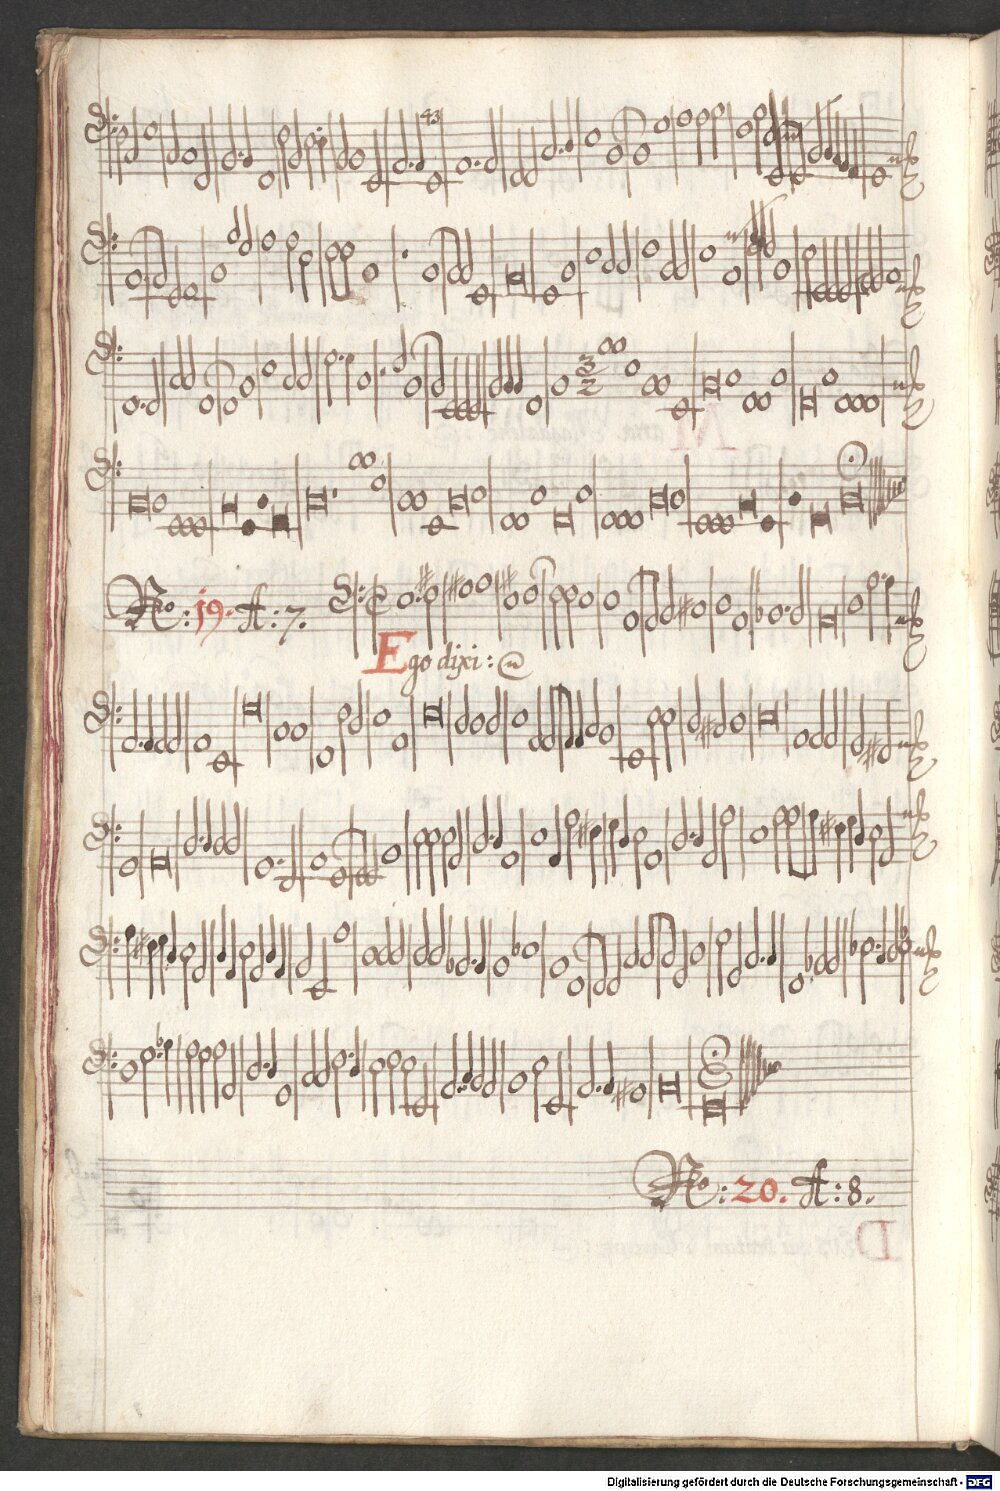 43
3
2
No: 19. A: 7.
Ego dixi:
No: 20. A: 8.
Digitalisierung gefördert durch die Deutsche Forschungsgemeinschaft - DFG